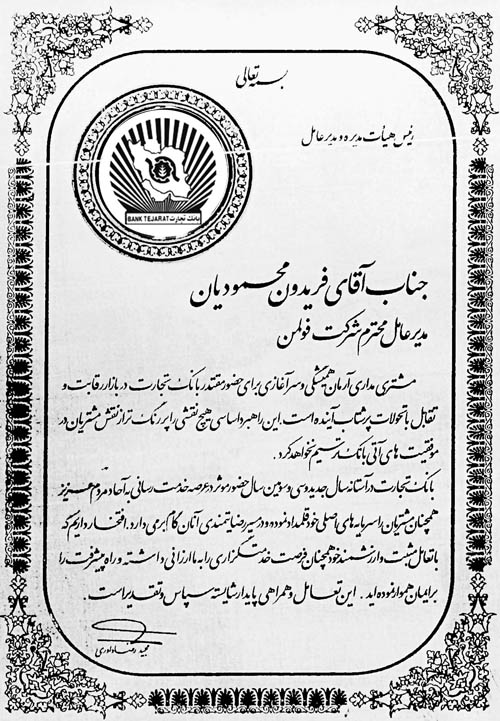 بسمه تعالی
رئیس هیأت مدیره و مدیر عامل
BANK TEJARAT بانک تجارت
جناب آقای فریدون محمودیان
مدیر عامل محترم شرکت فولمن
مشتری مداری آرمان همیشگی و سرآغازی برای حضور مقتدر بانک تجارت در بازار رقابت و
تقابل با تحولات پرشتاب آینده است. این راهبرد اساسی هیچ نقشی را پررنگ تر از نقش مشتریان در
موفقیت های آتی بانک ترسیم نخواهد کرد.
بانک تجارت در آستانه سال جدید و سی و سومین سال حضور موثر در عرصه خدمت رسانی به آحاد مردم عزیز
همچنان مشتریان را سرمایه های اصلی خود قلمداد نموده و در مسیر رضایتمندی آنان گام برمی دارد. افتخار داریم که
با تعامل مثبت و ارزشمند خود همچنان فرصت خدمتگزاری را به ما ارزانی داشته و راه پیشرفت را
برایمان هموار نموده اید. این تعامل و همراهی پایدار شایسته سپاس و تقدیر است.
مجید رضا داوری